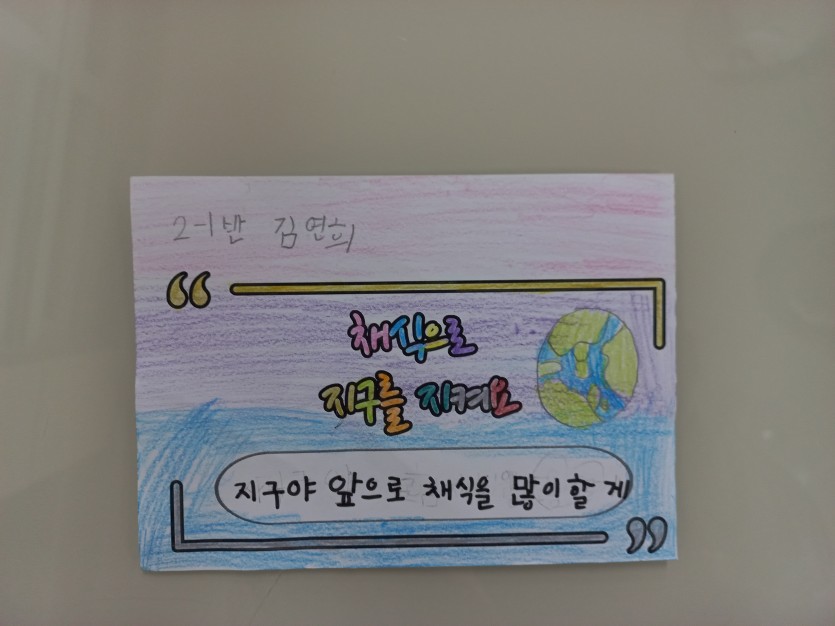 2-1반 김연희
“
채식으로
지구를 지켜요
지구야 앞으로 채식을 많이할게
”